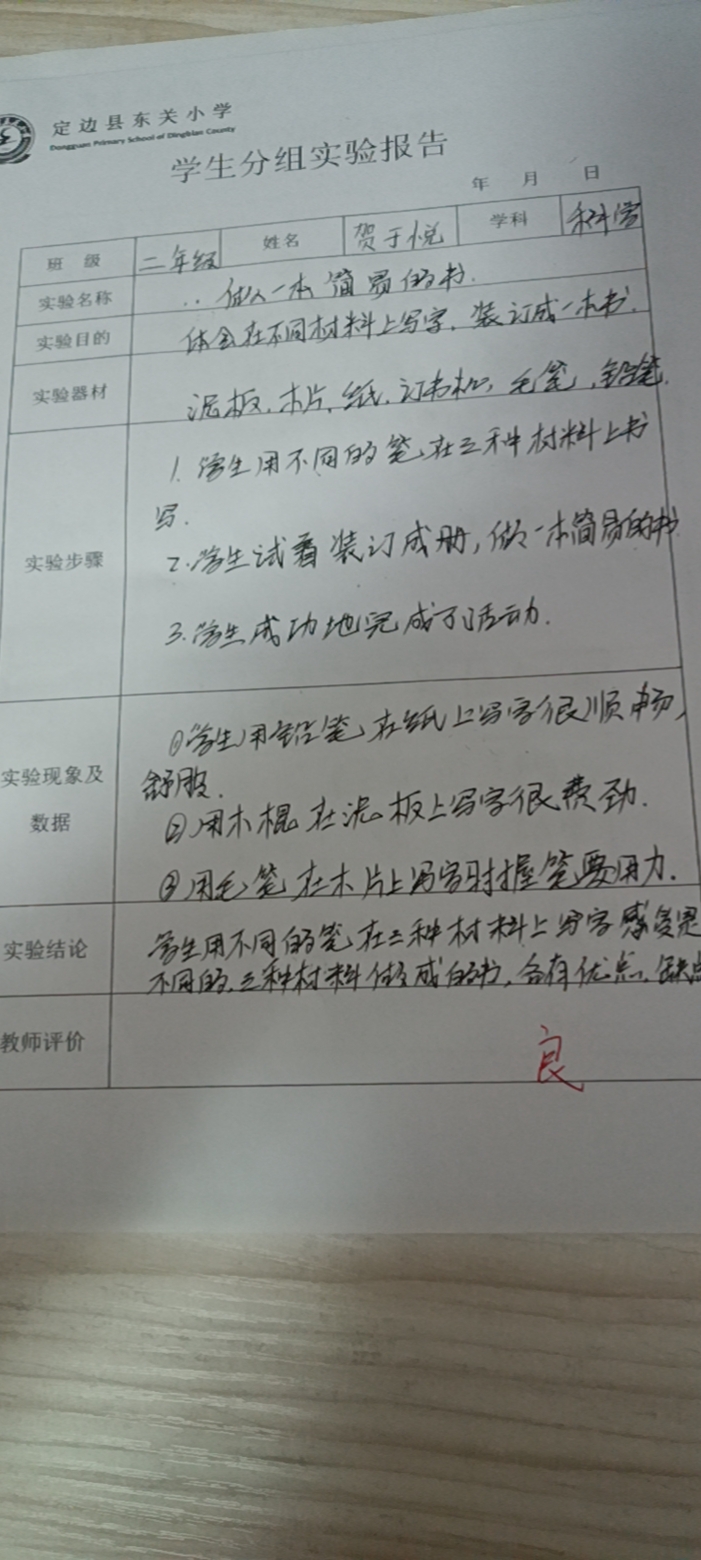 定边县东关小学
Dongguan Primary School of Dingbian County
学生分组实验报告
年 月 日
班 级 二年级 姓名 贺于悦 学科 科学
实验名称 做一本简易的书.
实验目的 体会在不同材料上写字,装订成一本书.
实验器材 泥板,木片,纸,订书机,毛笔,铅笔.
1.学生用不同的笔,在三种材料上书
写.
实验步骤 2.学生试着装订成册,做一本简易的书
3.学生成功地完成了活动.
①学生用铅笔,在纸上写字很顺畅,
实验现象及 舒服.
数据 ②用木棍在泥板上写字很费劲.
③用毛笔在木片上写字时握笔要用力.
实验结论 学生用不同的笔,在三种材料上写字感受是
不同的,三种材料做成的书,各有优点,缺点
教师评价
良